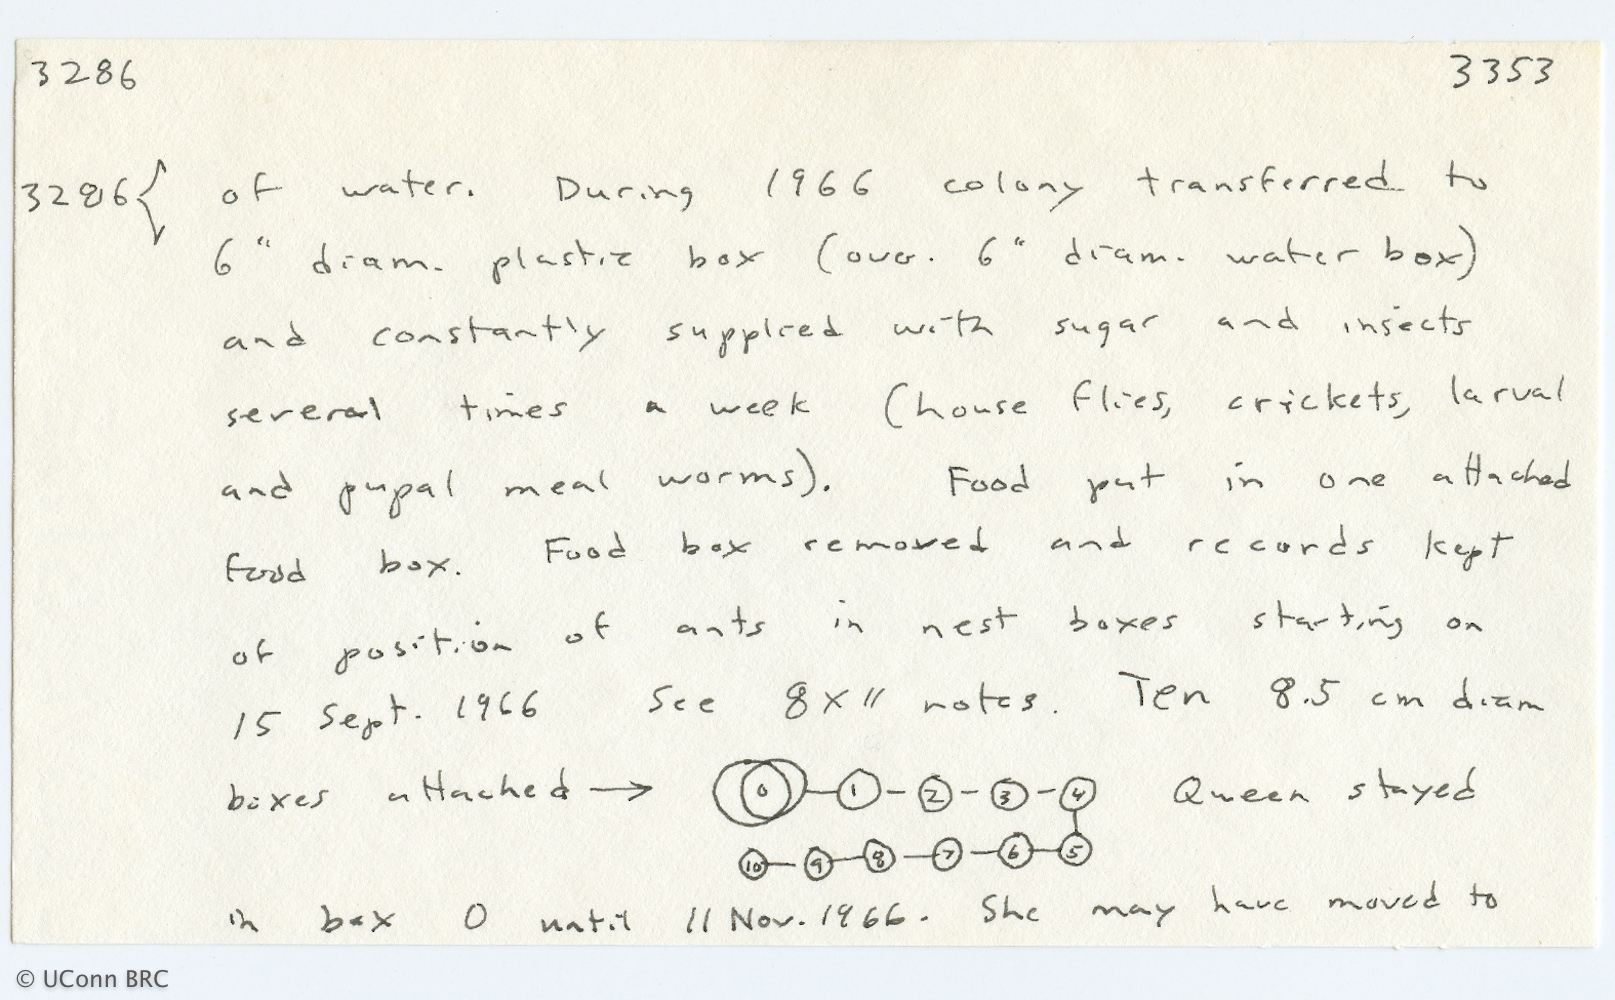 3286 3353
3286{ of water. During 1966 colony transferred to
6" diam. plastic box (over. 6" diam. water box)
and constantly supplied with sugar and insects
several times a week (house flies, crickets, larval
and pupal meal worms). Food put in one attached
food box. Food box removed and records kept
of position of ants in nest boxes starting on
15 Sept. 1966 See 8x11 notes. Ten 8.5 cm diam
boxes attached → 0 - 1 - 2 - 3 - 4 Queen stayed
10 - 9 - 8 - 7 - 6 - 5
in box 0 until 11 Nov. 1966. She may have moved to
© UConn BRC